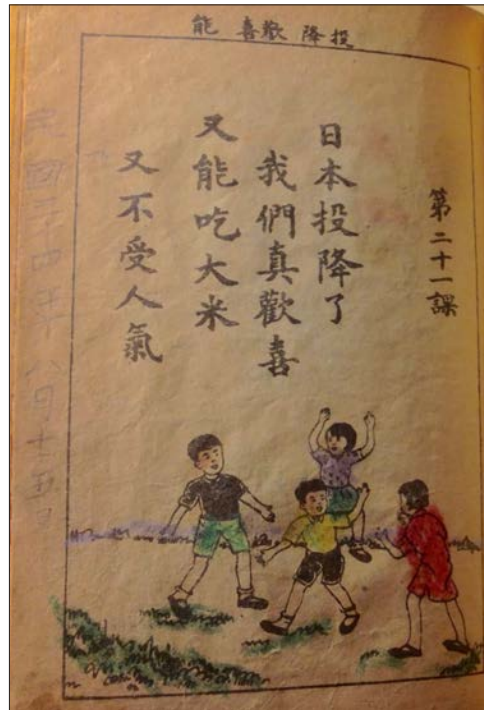 能 喜歡 降投
第二十一課
日本投降了
我們真歡喜
又能吃大米
又不受人氣
民國三十四年八月十五日